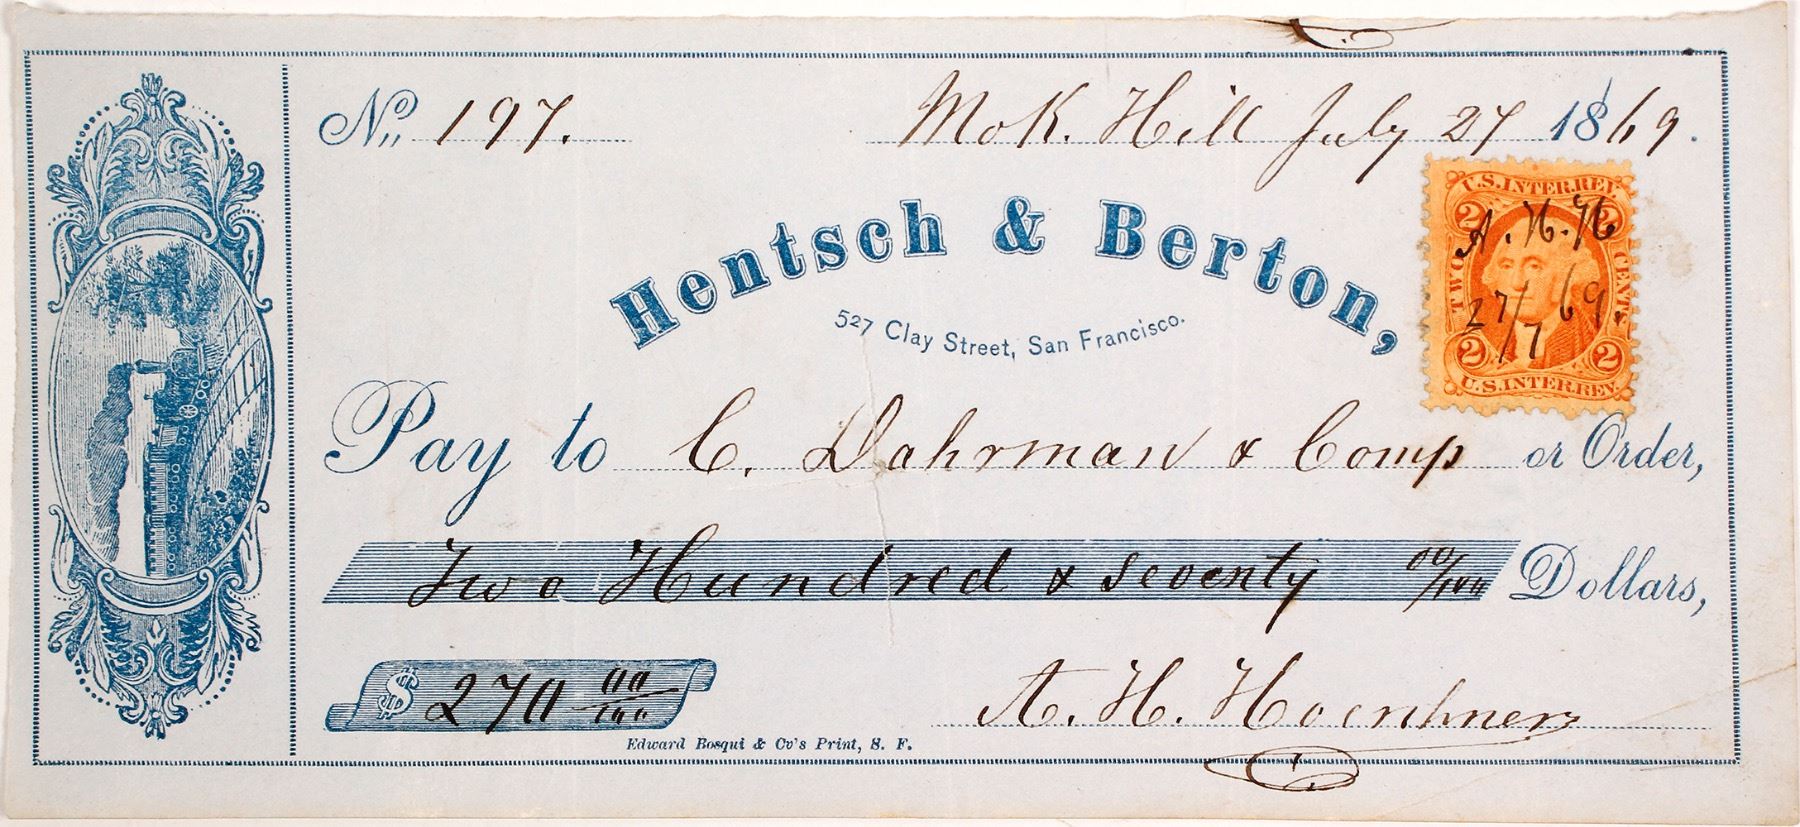 No. 197. Mok. Hill July 27 1869.
Hentsch & Berton,
527 Clay Street, San Francisco.
U.S. INTER. REV.
2 2
A.H.H
TWO CENTS
27/7 69.
2 2
U.S. INTER. REV.
Pay to C. Dahrman & Comp or Order,
Two Hundred & seventy 00/100 Dollars,
$ 270 00/100
A. H. H
Edward Bosqui & Co's Print, S. F.